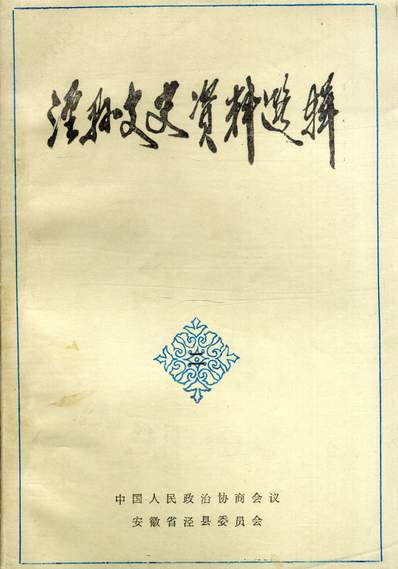 泾县文史资料选辑
二
中国人民政治协商会议
安徽省泾县委员会